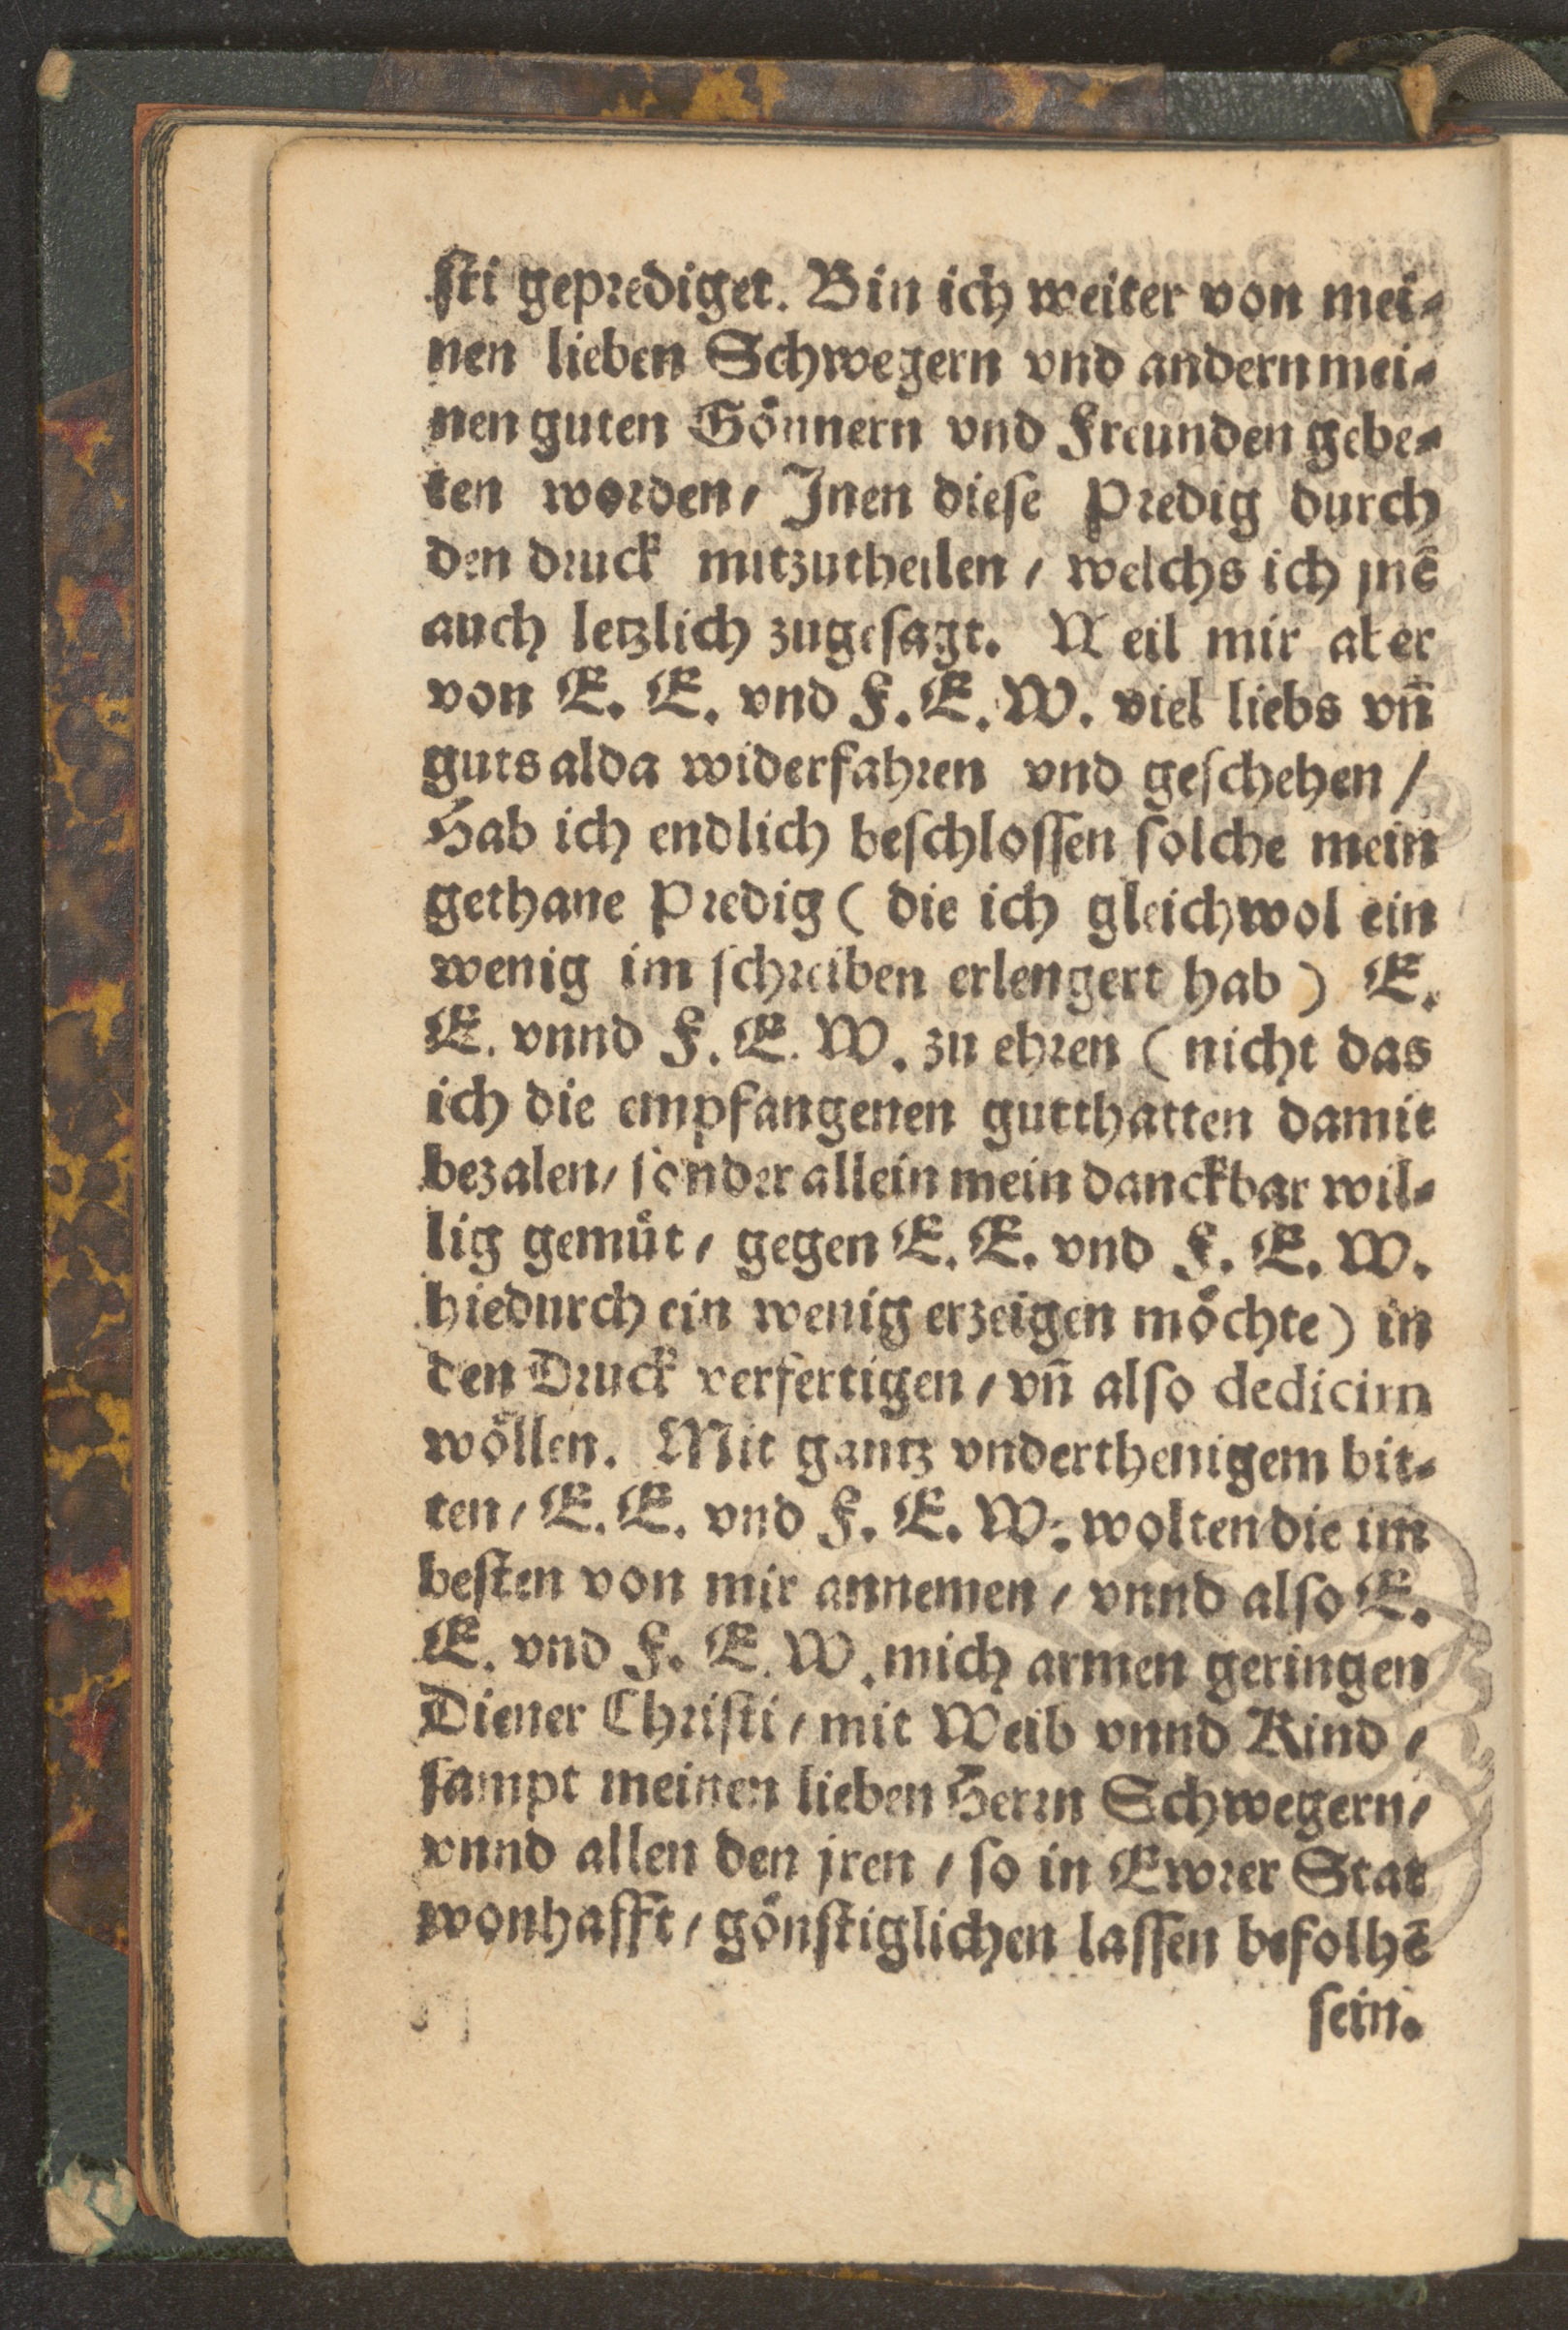 sti geprediget. Bin ich weiter von mei⸗
nen lieben Schwegern vnd andern mei⸗
nen guten Gönnern vnd Freunden gebe⸗
ten worden/ Jnen diese Predig durch
den druck mitzutheilen / welchs ich jnē
auch letzlich zugesagt. Weil mir aber
von E. E. vnd F. E. W. viel liebs vn̄
guts alda widerfahren vnd geschehen /
Hab ich endlich beschlossen solche mein
gethane Predig ( die ich gleichwol ein
wenig im schreiben erlengert hab ) E.
E. vnnd F. E. W. zu ehren ( nicht das
ich die empfangenen gutthatten damit
bezalen/ sonder allein mein danckbar wil⸗
lig gemüt / gegen E. E. vnd F. E. W.
hiedurch ein wenig erzeigen möchte) in
den Druck verfertigen / vn̄ also dedicirn
wöllen. Mit gantz vnderthenigem bit⸗
ten / E. E. vnd F. E. W. wolten die im
besten von mir annemen / vnnd also E.
E. vnd F. E. W. mich armen geringen
Diener Christi / mit Weib vnnd Kind /
sampt meinen lieben Herrn Schwegern/
vnnd allen den jren / so in Ewrer Stat
wonhafft / gönstiglichen lassen befolhē
sein.